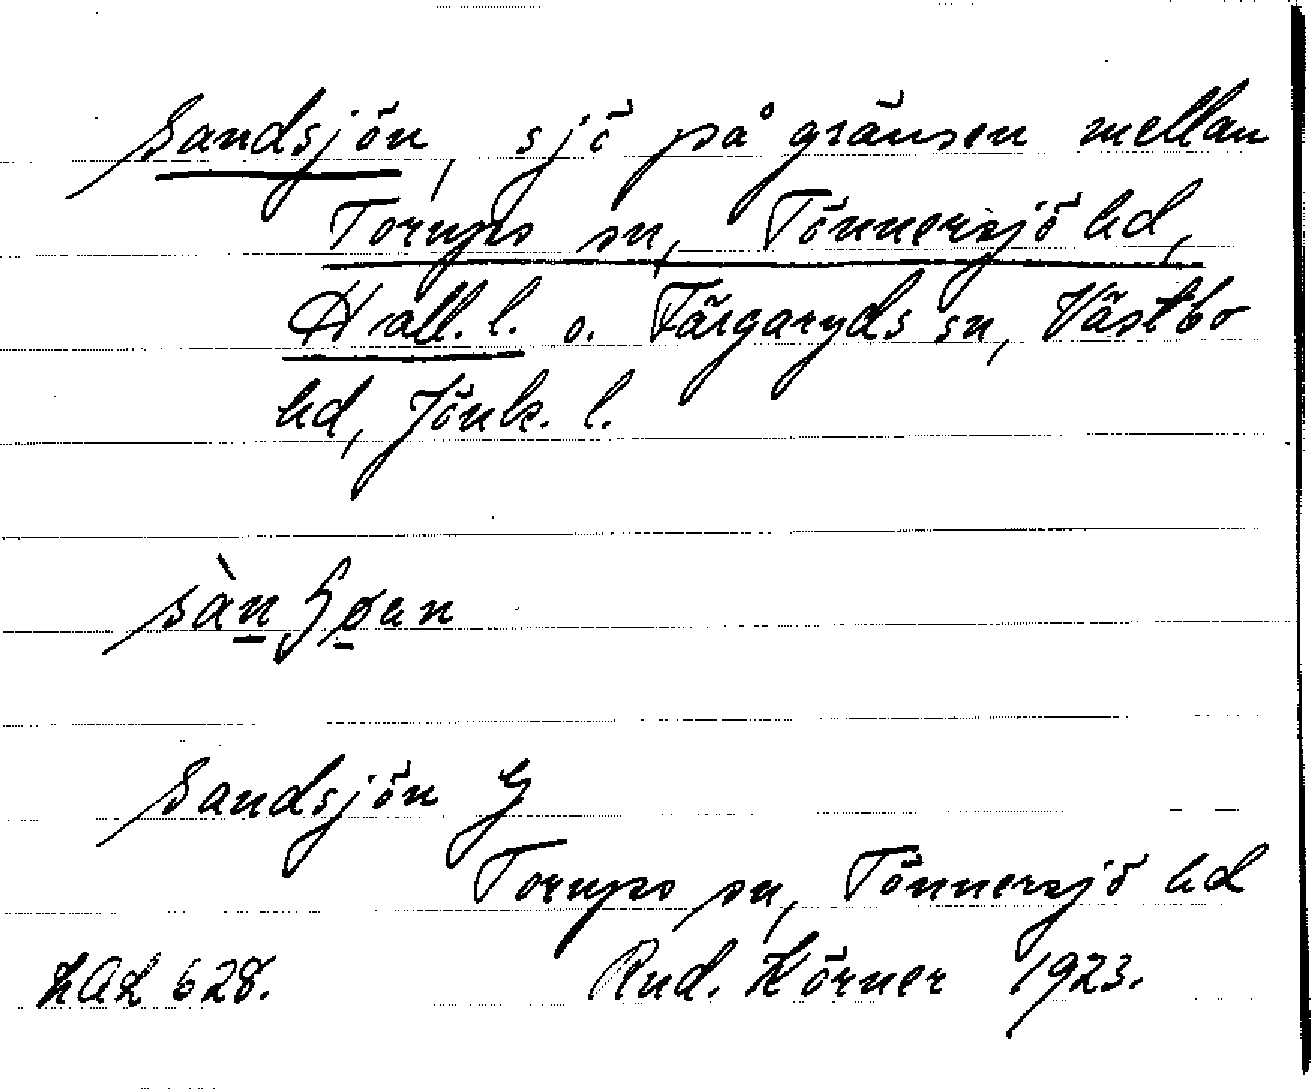 Sandsjön, sjö på gränsen mellan
Torups sn, Tönnersjö hd,
Hall. l. o. Färgaryds sn, Västbo
hd, Jönk. l.
Sandsjön G
Torups sn, Tönnersjö hd
LAL 628. Rud. Körner 1923.